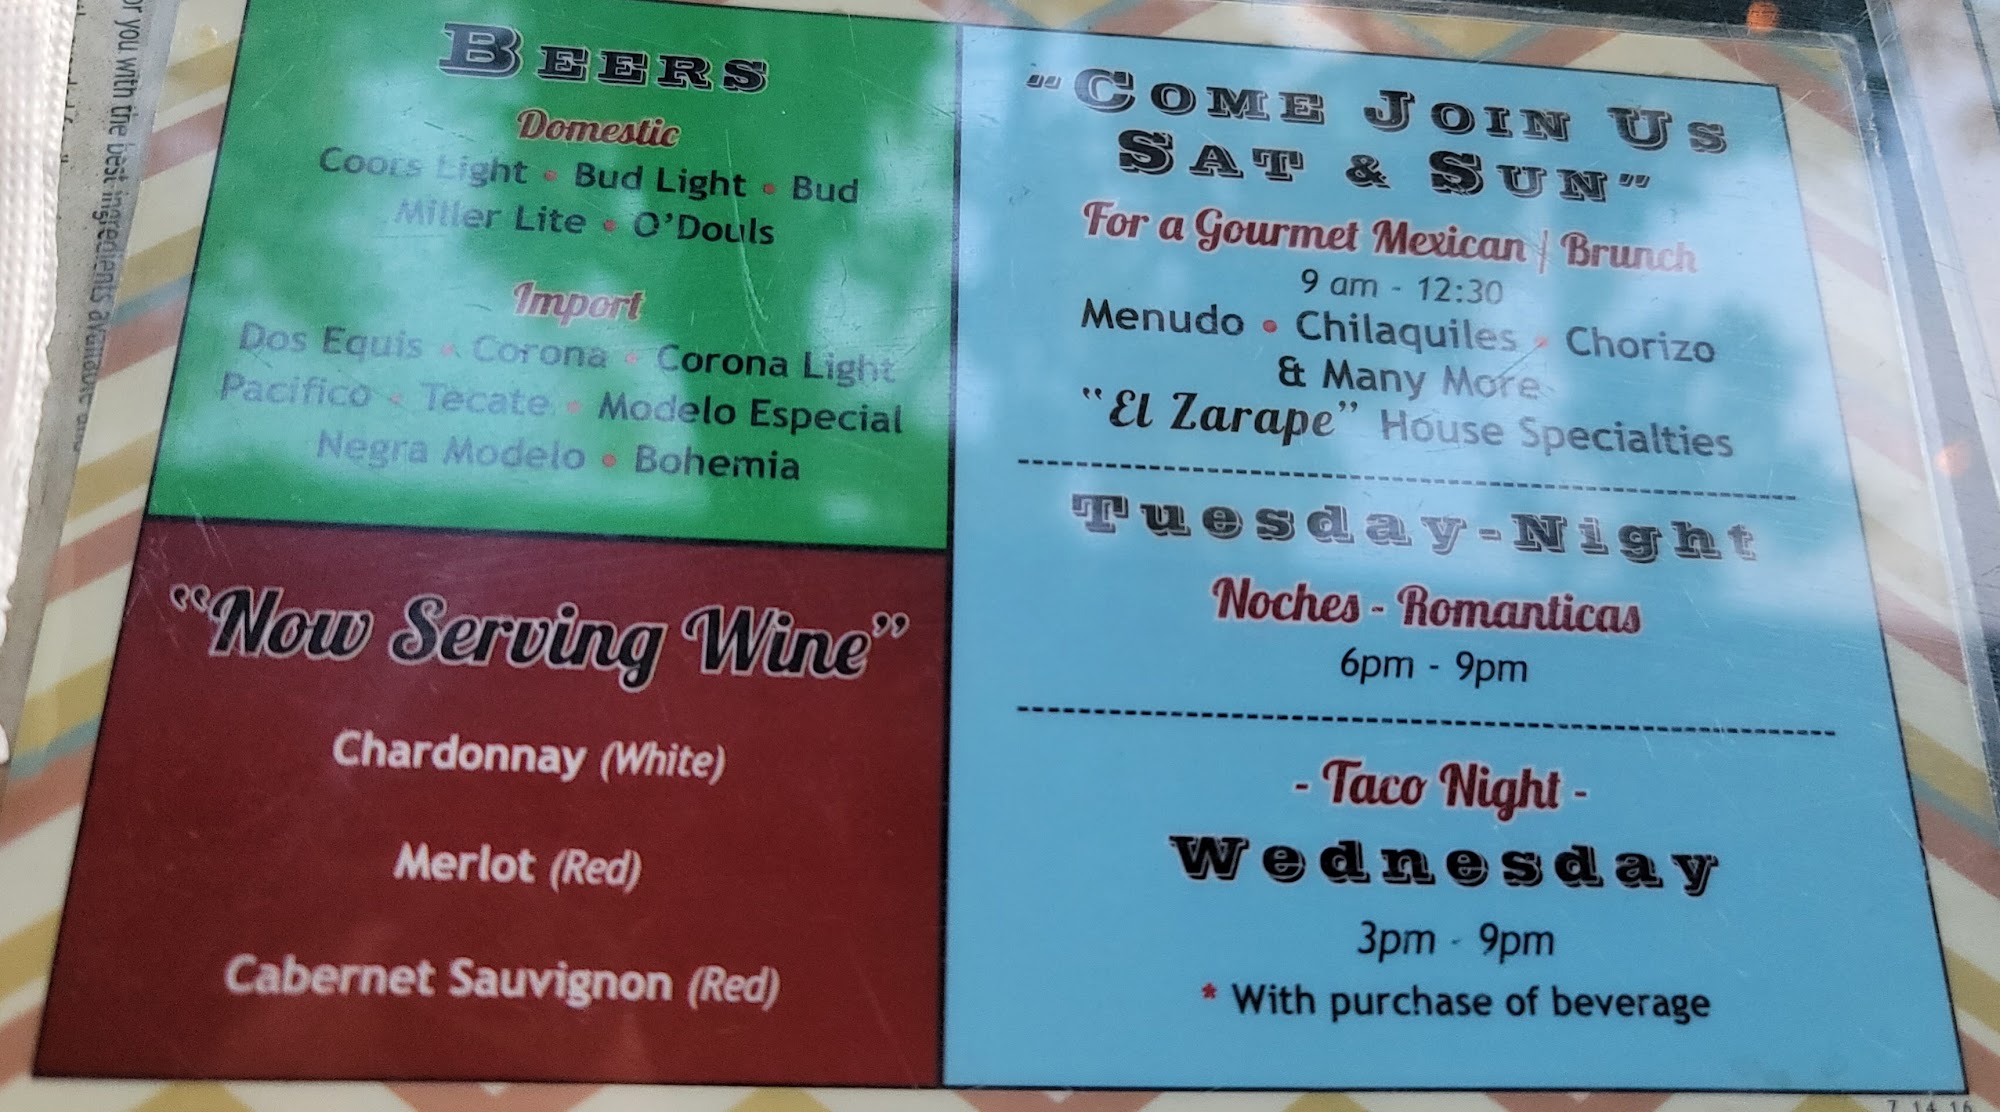 BEERS
Domestic
Coors Light • Bud Light • Bud
Miller Lite • O'Douls
Import
Dos Equis • Corona • Corona Light
Pacifico • Tecate • Modelo Especial
Negra Modelo • Bohemia
"Now Serving Wine"
Chardonnay (White)
Merlot (Red)
Cabernet Sauvignon (Red)
"COME JOIN US
SAT & SUN"
For a Gourmet Mexican | Brunch
9 am - 12:30
Menudo • Chilaquiles • Chorizo
& Many More
"El Zarape" House Specialties
Tuesday-Night
Noches - Romanticas
6pm - 9pm
- Taco Night -
Wednesday
3pm - 9pm
* With purchase of beverage
or you with the best ingredients available and